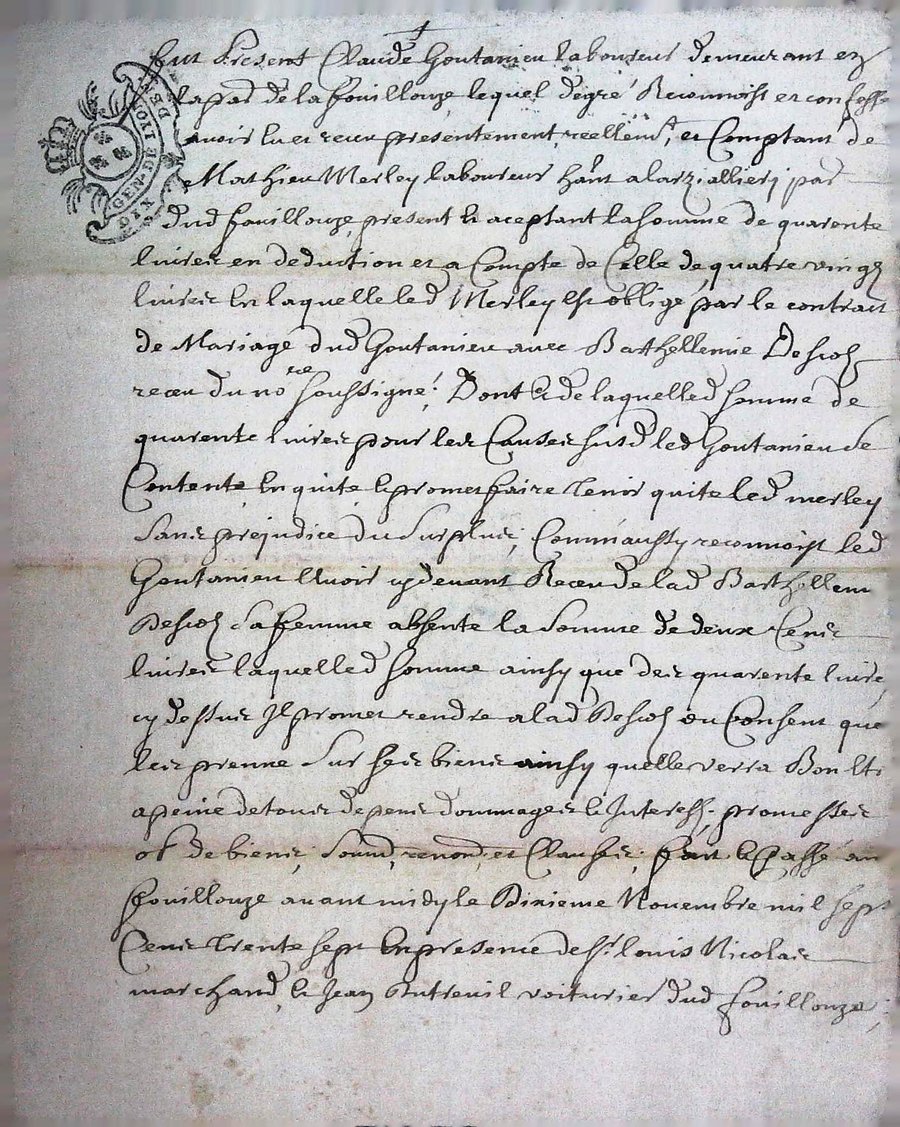 GEN. DE LYON
DIX DEN
fut Present Claude Goutanieu laboureur demeurant en
la par de la fouillouze lequel degré Reconnoist et confesse
avoir eu et receu presentement, reellemt, et Comptant de
Mathieu Merley laboureur hant a larzallierj par
dud fouillouze, present et aceptant la somme de quarente
livres en deduction et a Compte de Celle de quatre vingz
livres en laquelle led Merley est obligé par le contract
de Mariage dud Goutanieu avec Barthellemie Descoz
receu du nore soussigné! Dont et de laquelled somme de
quarente livres pour les Causes susd led Goutanieu se
Contente en quite et promet faire tenir quite led merley
sans prejudice du surplus; Comm'aussy reconnoist led
Goutanieu avoir cy devant Receu de lad Barthellem
Descoz sa femme absente la somme de deux Cens
livres laquelled somme ainsy que des quarente livre
cy dessus Il promet rendre a lad Descoz ou Consent que
les prenne sur ses biens ainsy quelle verra Bon
a peine de tous depens dommages et Interess. promesses
ob de biens, soumd, renond, et Clauses; fait et Passé au
fouillouze avant midy le Dixieme Novembre mil sept
Cens trente sept en presence de sr louis Nicolas
marchand, et Jean Dutreuil voiturier dud fouillouze;